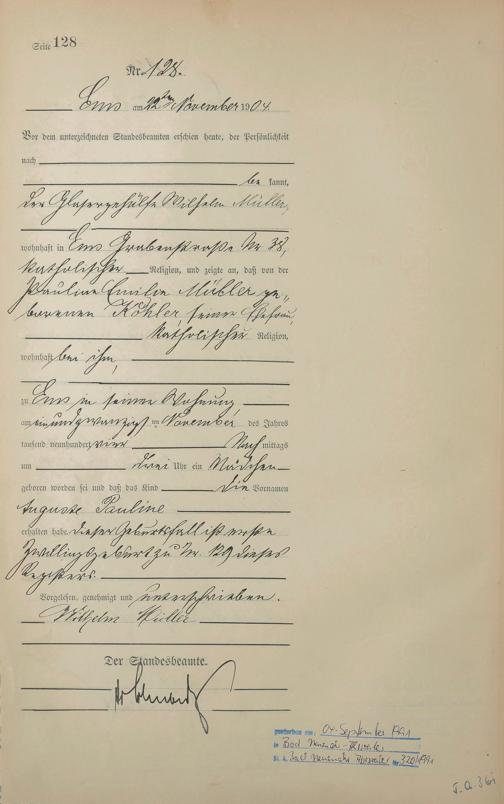 Seite 128
Nr. 128.
Ems am November 1904.
Vor dem unterzeichneten Standesbeamten erschien heute, der Persönlichkeit
nach
be kannt,
der Glasergehülfe Wilhelm Müller,
wohnhaft in Ems Grabenstraße Nr. 38,
katholischer Religion, und zeigte an, daß von der
Pauline Emilie Müller ge„
borenen Köhler, seiner Ehefrau,
katholischer Religion,
wohnhaft bei ihm,
zu Ems in seiner Wohnung
am einundzwanzigst en November des Jahres
tausend neunhundert vier Nach mittags
um drei Uhr ein Mädchen
geboren worden sei und daß das Kind die Vornamen
Auguste Pauline
erhalten habe. Dieser Geburtsfall ist erste
Zwillingsgeburt zu Nr. 129 dieses
Registers.
Vorgelesen, genehmigt und unterschrieben.
Wilhelm Müller
Der Standesbeamte.
gestorben am: 04. September 1991
in Bad Neuenahr-Ahrweiler
St. A. Bad Neuenahr-Ahrweiler Nr. 320/1991